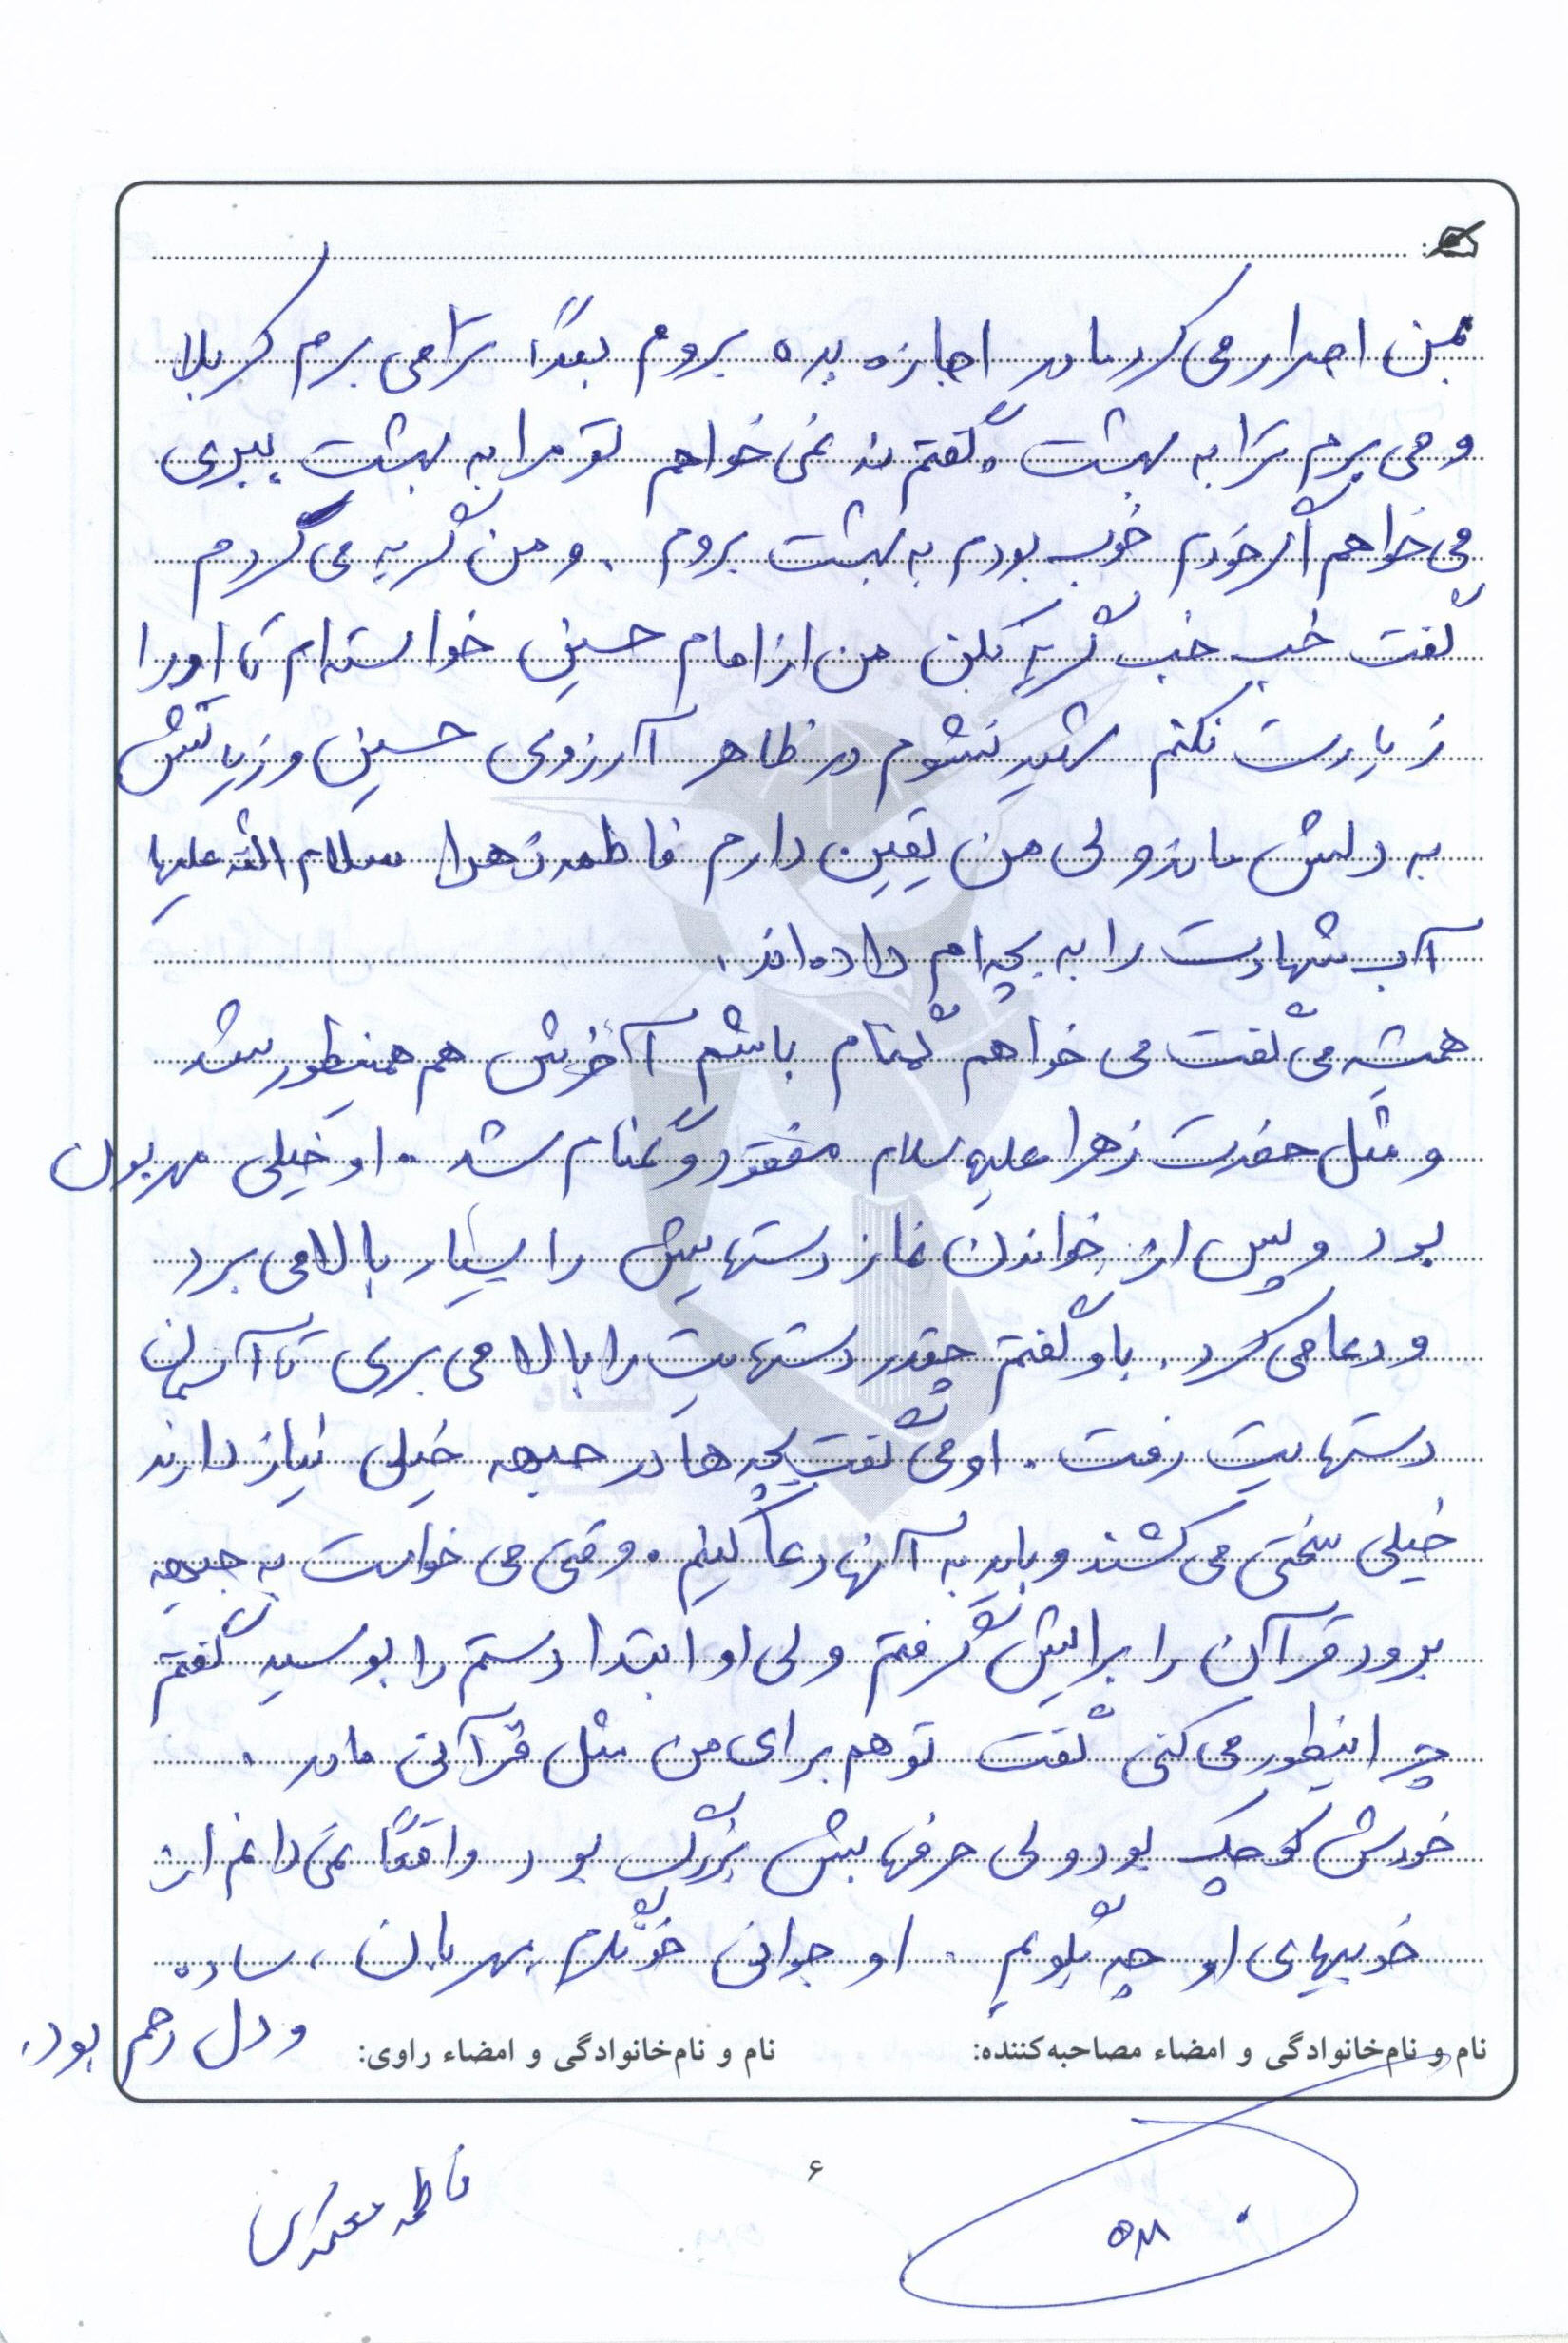 بمن اصرار می کرد مادر اجازه بده بروم بعداً ترا می برم کربلا
و می برم ترا به بهشت، گفتم نه نمی خواهم تو مرا به بهشت ببری
می خواهم اگر خودم خوب بودم به بهشت بروم. و من گریه می کردم
گفت خب خب گریه نکن من از امام حسین خواسته ام تا او را
زیارت نکنم شهید نشوم در ظاهر آرزوی حسین و زیارتش
به دلش ماند ولی من یقین دارم فاطمه زهرا سلام الله علیها
آب شهادت را به بچه ام داده اند.
همیشه می گفت می خواهم گمنام باشم آخرش هم همینطور شد
و مثل حضرت زهرا علیها سلام مفقود و گمنام شد. او خیلی مهربون
بود و پس از خواندن نماز دستهایش را بسیار بالا می برد
و دعا می کرد. باو گفتم چقدر دستهایت را بالا می بری تا آسمان
دستهایت رفت. او می گفت بچه ها در جبهه خیلی نیاز دارند
خیلی سختی می کشند و باید به آنها دعا کنیم. وقتی می خواست به جبهه
برود قرآن را برایش گرفتم ولی او ابتدا دستم را بوسید گفتم
چرا اینطور می کنی گفت تو هم برای من مثل قرآنی مادر.
خودش کوچک بود ولی حرفهایش بزرگ بود واقعاً نمی دانم از
خوبیهای او چه بگویم. او جوانی خونگرم، مهربان، ساده
و دل رحم بود.
نام و نام‌خانوادگی و امضاء مصاحبه‌کننده:
نام و نام‌خانوادگی و امضاء راوی:
۶
فاطمه